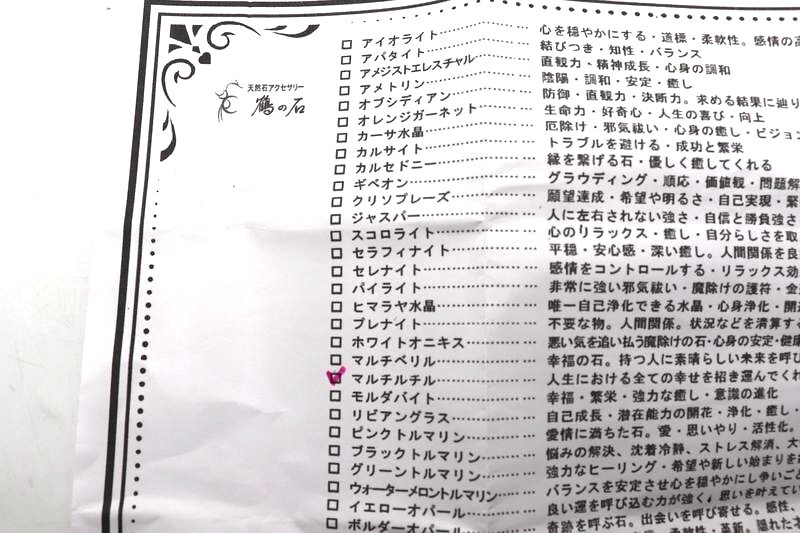 天然石アクセサリー
鶴の石
アイオライト 心を穏やかにする・道標・柔軟性。感情の高
アパタイト 結びつき・知性・バランス
アメジストエレスチャル 直観力・精神成長・心身の調和
アメトリン 陰陽・調和・安定・癒し
オブシディアン 防御・直観力・決断力。求める結果に辿り
オレンジガーネット 生命力・好奇心・人生の喜び・向上
カーサ水晶 厄除け・邪気祓い・心身の癒し・ビジョン
カルサイト トラブルを避ける・成功と繁栄
カルセドニー 縁を繋げる石・優しく癒してくれる
ギベオン グラウディング・順応・価値観・問題解
クリソプレーズ 願望達成・希望や明るさ・自己実現・繁
ジャスパー 人に左右されない強さ・自信と勝負強さ
スコロライト 心のリラックス・癒し・自分らしさを取
セラフィナイト 平穏・安心感・深い癒し。人間関係を良
セレナイト 感情をコントロールする・リラックス効
パイライト 非常に強い邪気祓い・魔除けの護符・金
ヒマラヤ水晶 唯一自己浄化できる水晶・心身浄化・開
プレナイト 不要な物。人間関係。状況などを清算す
ホワイトオニキス 悪い気を追い払う魔除けの石・心身の安定・健康
マルチベリル 幸福の石。持つ人に素晴らしい未来を呼び
マルチルチル 人生における全ての幸せを招き運んでくれ
モルダバイト 幸福・繁栄・強力な癒し・意識の進化
リビアングラス 自己成長・潜在能力の開花・浄化・癒し・
ピンクトルマリン 愛情に満ちた石。愛・思いやり・活性化。
ブラックトルマリン 悩みの解決、沈着冷静、ストレス解消、大
グリーントルマリン 強力なヒーリング・希望や新しい始まりを
ウォーターメロントルマリン バランスを安定させ心を穏やかにし争いごと
イエローオパール 良い運を呼び込む力が強く、思いを叶えてい
ボルダーオパール 奇跡を呼ぶ石。出会いを呼び寄せる。感性、
柔軟性・革新。隠れた才